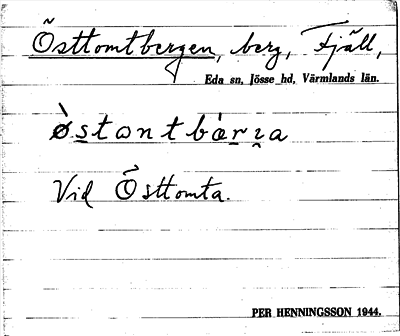 Östtomtbergen, berg, Fjäll,
Eda sn, Jösse hd, Värmlands län.
ø̀s̲tɷntbàr̲ʒa
Vid Östtomta.
PER HENNINGSSON 1944.